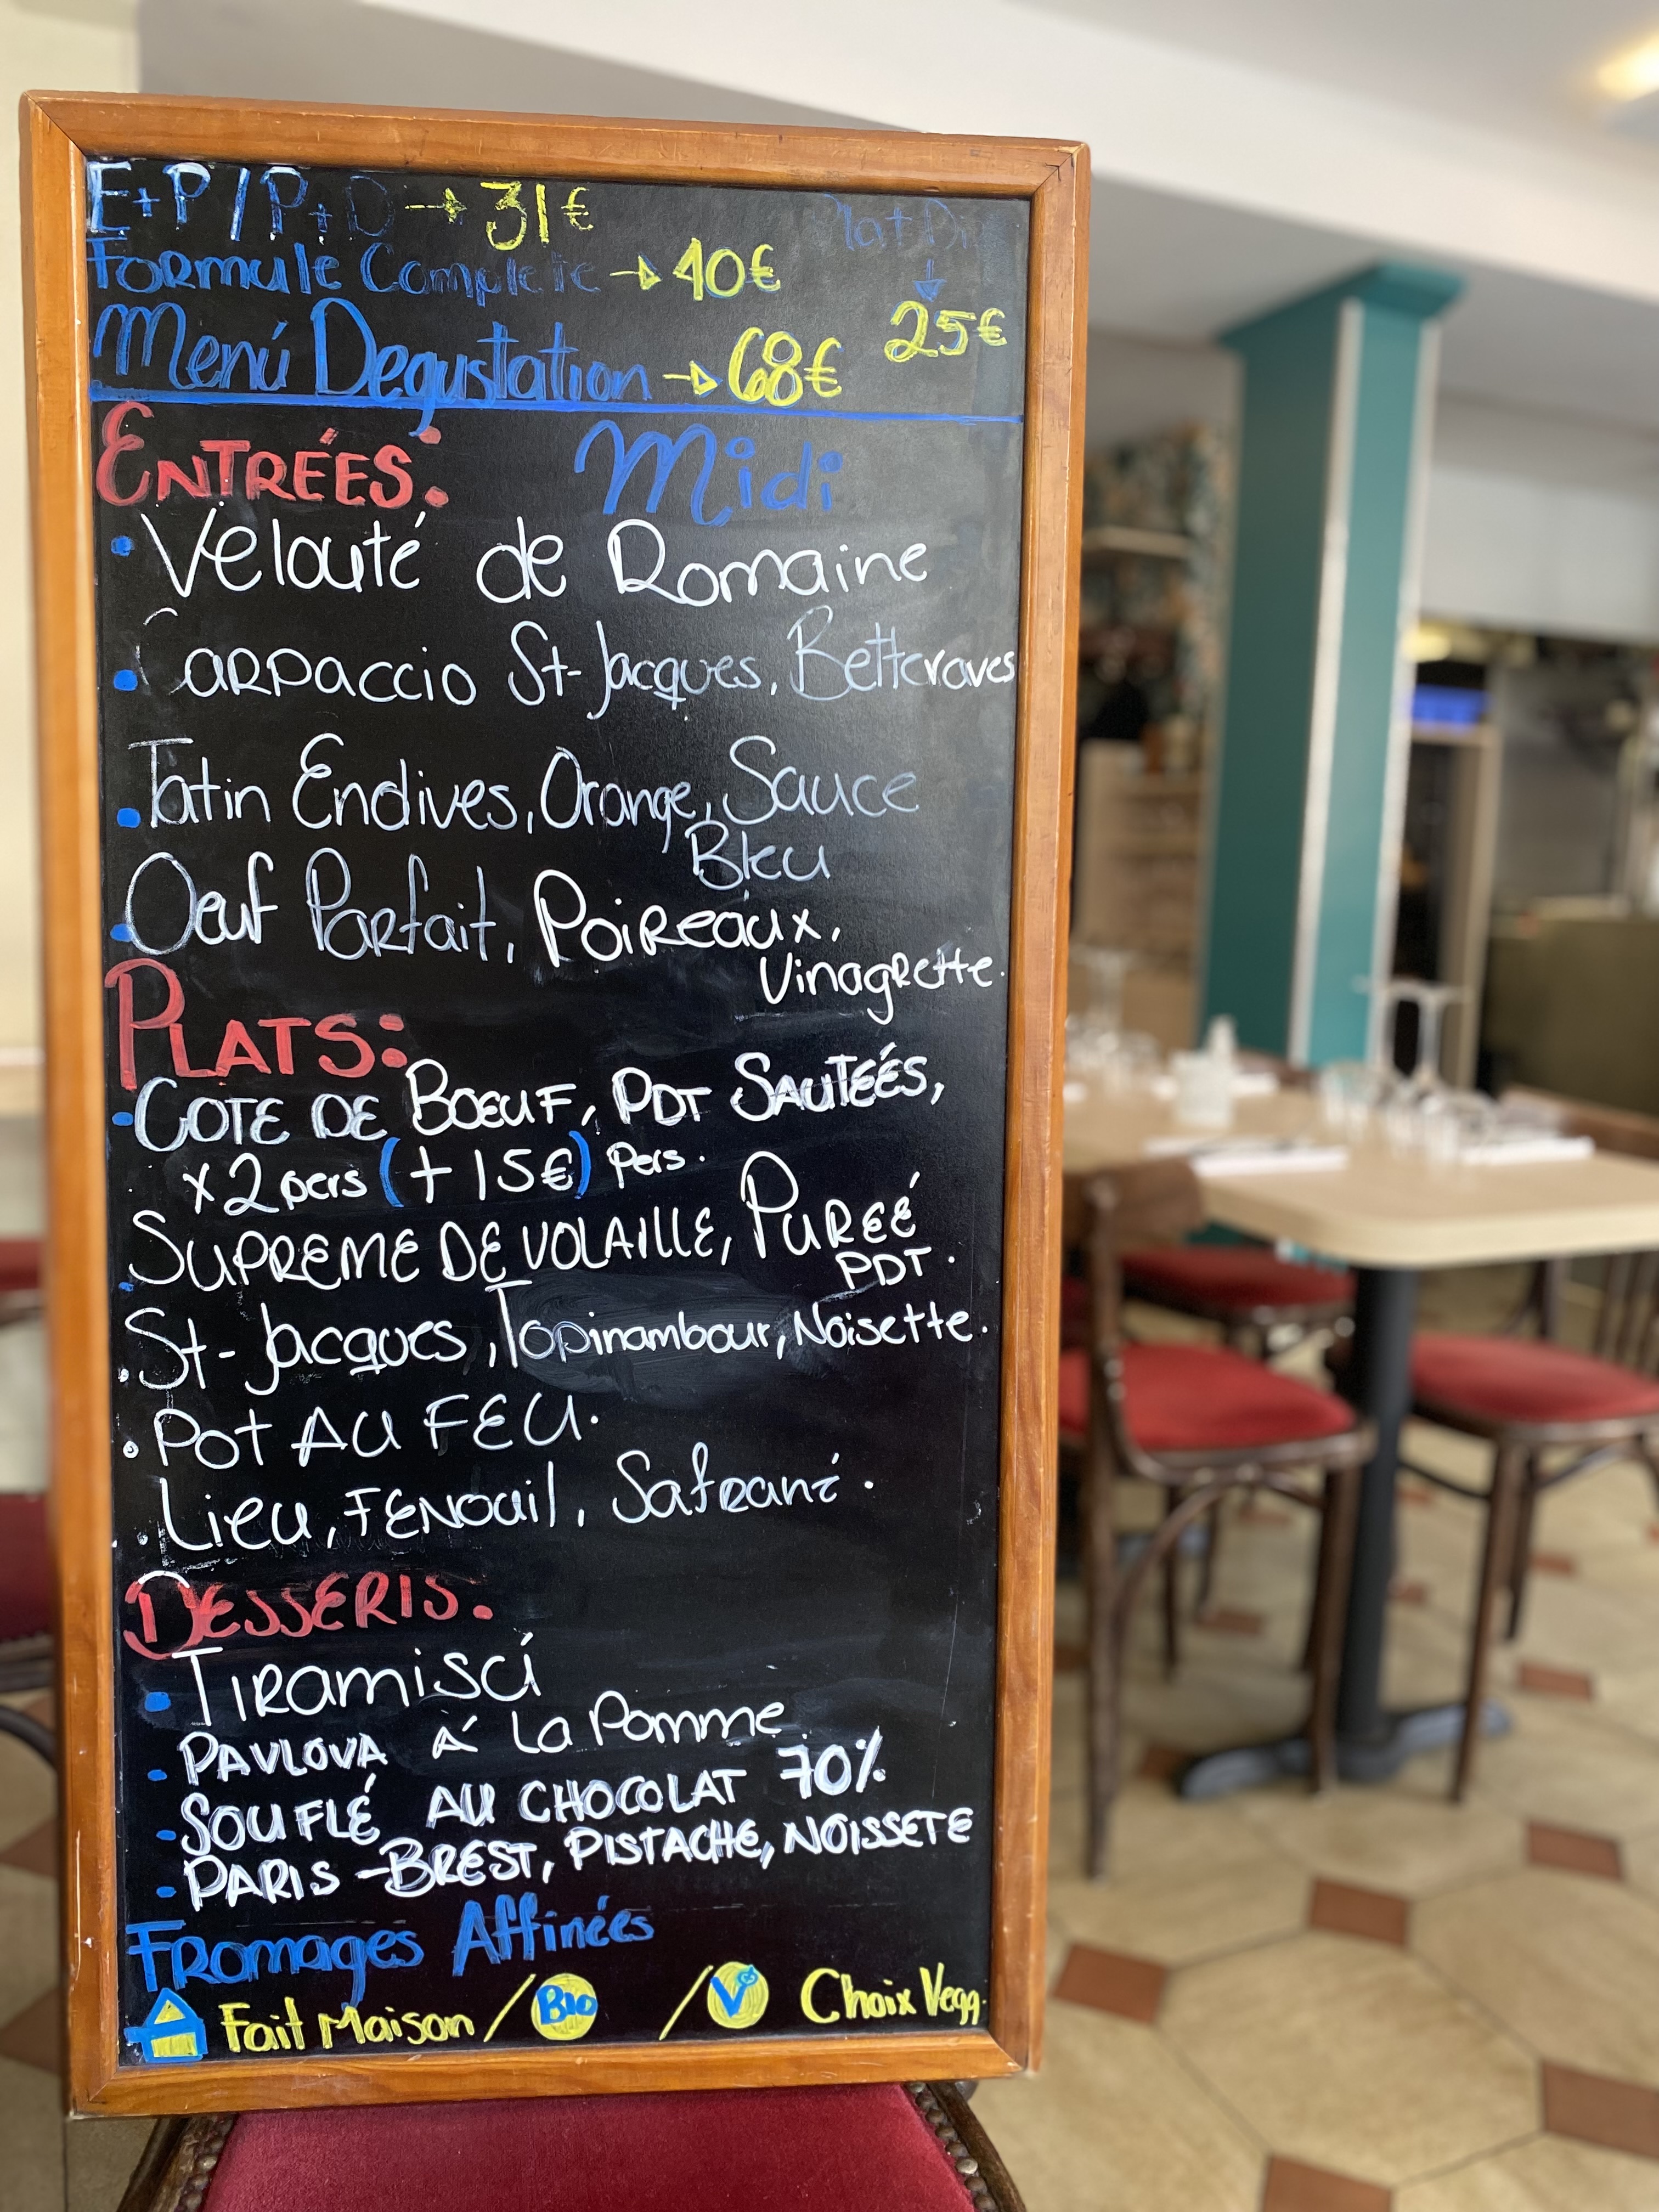 E+P / P+D → 31€
Formule Complete → 40€
Plat
25€
Menú Degustation → 68€
ENTRÉES: Midi
• Velouté de Romaine
• Carpaccio St-Jacques, Betteraves
• Tatin Endives, Orange, Sauce
Bleu
• Oeuf Parfait, Poireaux,
Vinagrette.
PLATS:
• COTE DE BOEUF, PDT SAUTEÉS,
x2 pers (+15€) Pers.
• SUPREME DE VOLAILLE, PUREÉ
PDT.
• St-Jacques, Topinambour, Noisette.
• POT AU FEU.
• Lieu, FENOUIL, Safrané.
DESSERTS:
• TIRAMISÚ
• PAVLOVA À La Pomme
• SOUFLÉ AU CHOCOLAT 70%
• PARIS-BREST, PISTACHE, NOISSETE
FROMAGES Affinées
Fait Maison / BIO / V Choix Vegg.